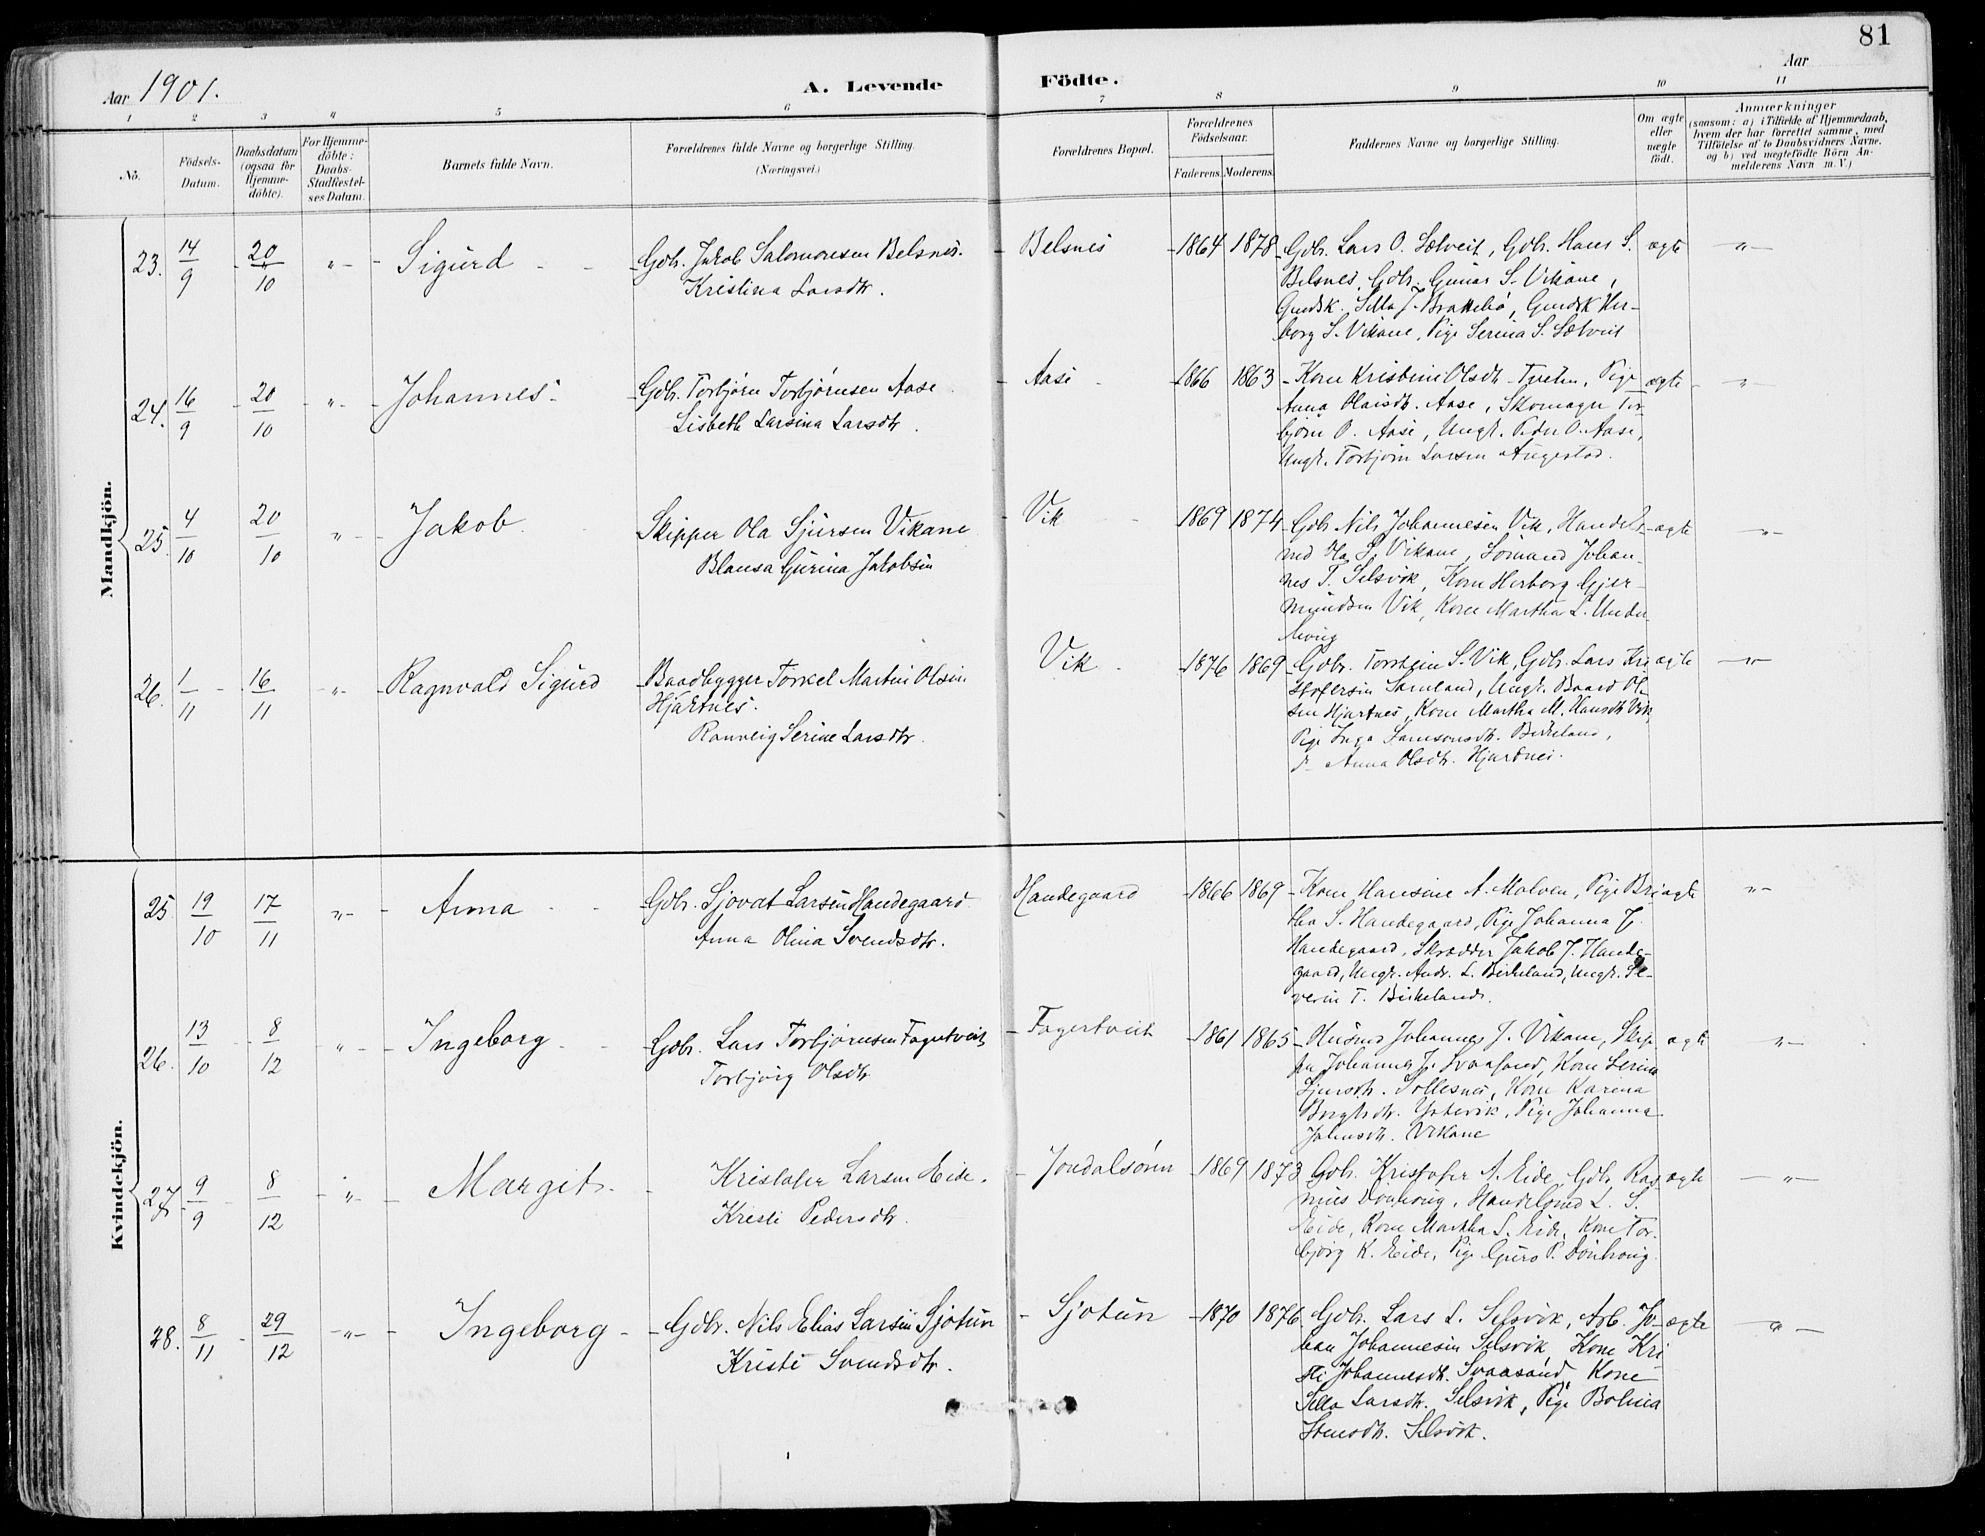 81
Aar 1901.
A. Levende Födte.
Aar
1 2 3 4 5 6 7 8 9 10 11
No.
Födsels-Datum.
Daabsdatum (ogsaa for Hjemme-döbte).
For Hjemme-döbte: Daabs-Stadfæstel-ses Datum.
Barnets fulde Navn.
Forældrenes fulde Navne og borgerlige Stilling.
(Næringsvei.)
Forældrenes Bopæl.
Forældrenes Födselsaar.
Faderens. Moderens.
Faddernes Navne og borgerlige Stilling.
Om ægte eller uægte født.
Anmærkninger
(saasom: a) i Tilfælde af Hjemmedaab,
hvem der har forrettet samme, med
Tilföielse af to Daabsvidners Navne,
og b) ved uægtefödte Börn An-
melderens Navn m. V.)
Mandkjön.
23. 14/9 20/10 " Sigurd
Gbr. Jakob Salomonsen Belsnes.
Kristina Larsdtr.
Belsnes 1864 1878
Gbr. Lars O. Sætveit, Gbr. Hans S.
Belsnes, Gbr. Gunar S. Vikane,
Gmdsk. Silla J. Brattebö, Gmdsk Her-
borg S. Vikane, Pige Serina S. Sætveit
ægte "
24. 16/9 20/10 " Johannes
Gbr. Torbjørn Torbjørnsen Aase
Lisbeth Larsina Larsdtr.
Aase 1866 1863
Kone Kristine Olsdtr. Pige
Anna Olaisdtr. Aase, Skomager Tor-
bjørn O. Aase, Ungk. Peder O. Aase,
Ungk. Torbjørn Larsen Augestad.
ægte "
25. 4/10 20/10 " Jakob
Skipper Ola Sjursen Vikane
Blansa Gurina Jakobsen
Vik 1869 1874
Gbr Nils Johannesen Vik, Handels-
md Ha. S. Vikane, Sömand Johan-
nes T. Selsvik, Kone Herborg Gjer-
mundsen Vik, Kone Martha L. Under-
ægte "
26. 1/11 16/11 " Ragnvald Sigurd
Baadbygger Torkel Martin Olsen
Hjartnes.
Ranveig Serine Larsdtr.
Vik 1876 1869
Gbr. Torstein S. Vik, Gbr. Lars Kri-
stofersen Samland, Ungk. Baard Ol-
sen Hjartnes, Kone Martha M. Hansdtr Vik,
Pige Inga Samsonsdtr. Birkeland,
Anna Olsdtr. Hjartnes.
ægte "
Kvindekjön.
25. 19/10 17/11 " Anna
Gbr. Sjovat Larsen Handegaard
Anna Olina Svendsdtr.
Handegaard 1866 1869
Kone Hansine A. Molven, Pige Bri-
tha S. Handegaard, Pige Johanna J.
Handegaard, Skrædder Jakob J. Hande-
gaard, Ungk. Andr. L. Birkeland, Ungk. Se-
verin T. Birkeland.
ægte "
26. 13/10 8/12 " Ingeborg
Gbr. Lars Torbjørnsen Fagertveit
Torbjørg Olsdtr
Fagertveit 1861 1865
Husmd Johannes J. Vikane, Skip-
per Johannes J. Svaasand, Kone Serina
Sjursdtr. Sollesnes, Kone Karina
Ystevik, Pige Johanna
Johnsdtr. Vikane
ægte "
27. 9/9 8/12 " Margit
Kristofer Larsen Eide.
Kristi Pedersdtr.
Jondalsören 1869 1873
Gbr. Kristofer A. Eide, Gbr. Ras-
mus Dönhoug, Handelsmd L. S.
Eide, Kone Martha S. Eide, Kone Tor-
bjørg K. Eide, Pige Guro P. Dönhoug.
ægte "
28. 8/11 29/12 " Ingeborg
Gbr. Nils Elias Larsen Sjotun
Kristi Svendsdtr.
Sjotun 1870 1876
Gbr. Lars L. Selsvik, Arb. Jo-
han Johannesen Selsvik, Kone Kri-
sti Johannesdtr. Svaasand, Kone
Silla Larsdtr. Selsvik, Pige Bolina
Stensdtr. Selsvik.
ægte "